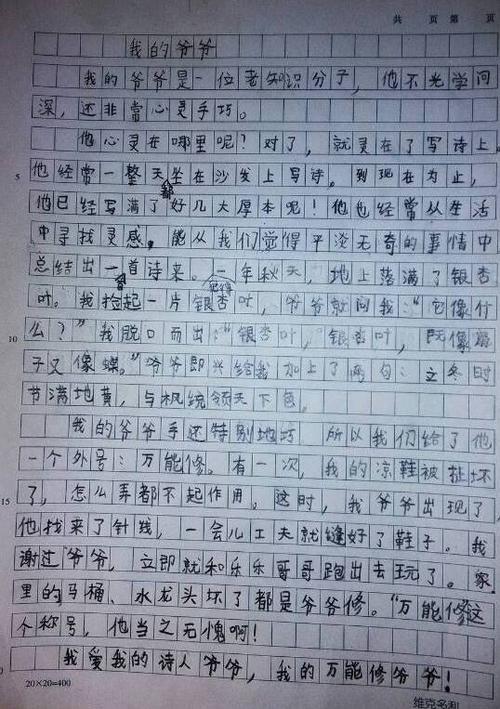 共 页 第 页
我的爷爷
我的爷爷是一位老知识分子，他不光学问
深，还非常心灵手巧。
他心灵在哪里呢？对了，就灵在了写诗上。
5 他经常一整天都坐在沙发上写诗。到现在为止，
他已经写满了好几大厚本呢！他也经常从生活
中寻找灵感，能从我们觉得平淡无奇的事情中
总结出一首诗来。记得一年秋天，地上落满了银杏
叶。我捡起一片银杏叶，爷爷就问我：“它像什
10 么？”我脱口而出：“银杏叶，银杏叶，既像扇
子又像蝶。”爷爷即兴给我加上了两句：立冬时
节满地黄，与枫统领天下色。
我的爷爷手还特别地巧 所以我们给了他
一个外号：万能修。有一次，我的凉鞋被扯坏
15 了，怎么弄都不起作用。这时，我爷爷出现了，
他找来了针线，一会儿工夫就缝好了鞋子。我
谢过爷爷，立即就和乐乐哥哥跑出去玩了。家
里的马桶、水龙头坏了都是爷爷修。“万能修”这
个称号，他当之无愧啊！
我爱我的诗人爷爷，我的万能修爷爷！
20×20=400
维克多利